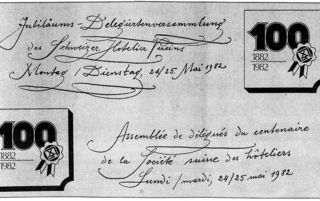 Jubiläums-Delegiertenversammlung
des Schweizer Hotelier Vereins
Montag / Dienstag, 24/25 Mai 1982
100
1882
1982
100
1882
1982
Assemblée de délégués du centenaire
de la Société suisse des hôteliers
Lundi / mardi, 24/25 mai 1982